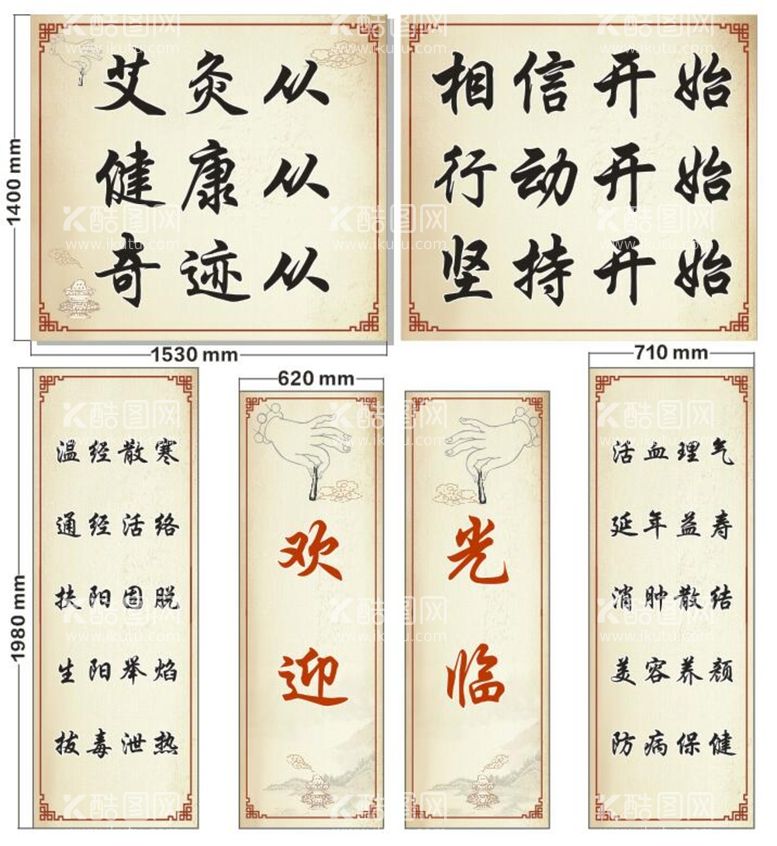 艾灸从
健康从
奇迹从
相信开始
行动开始
坚持开始
1400 mm
1530 mm
620 mm
710 mm
1980 mm
温经散寒
通经活络
扶阳固脱
生阳举焰
拔毒泄热
欢
迎
光
临
活血理气
延年益寿
消肿散结
美容养颜
防病保健
酷图网
www.ikutu.com